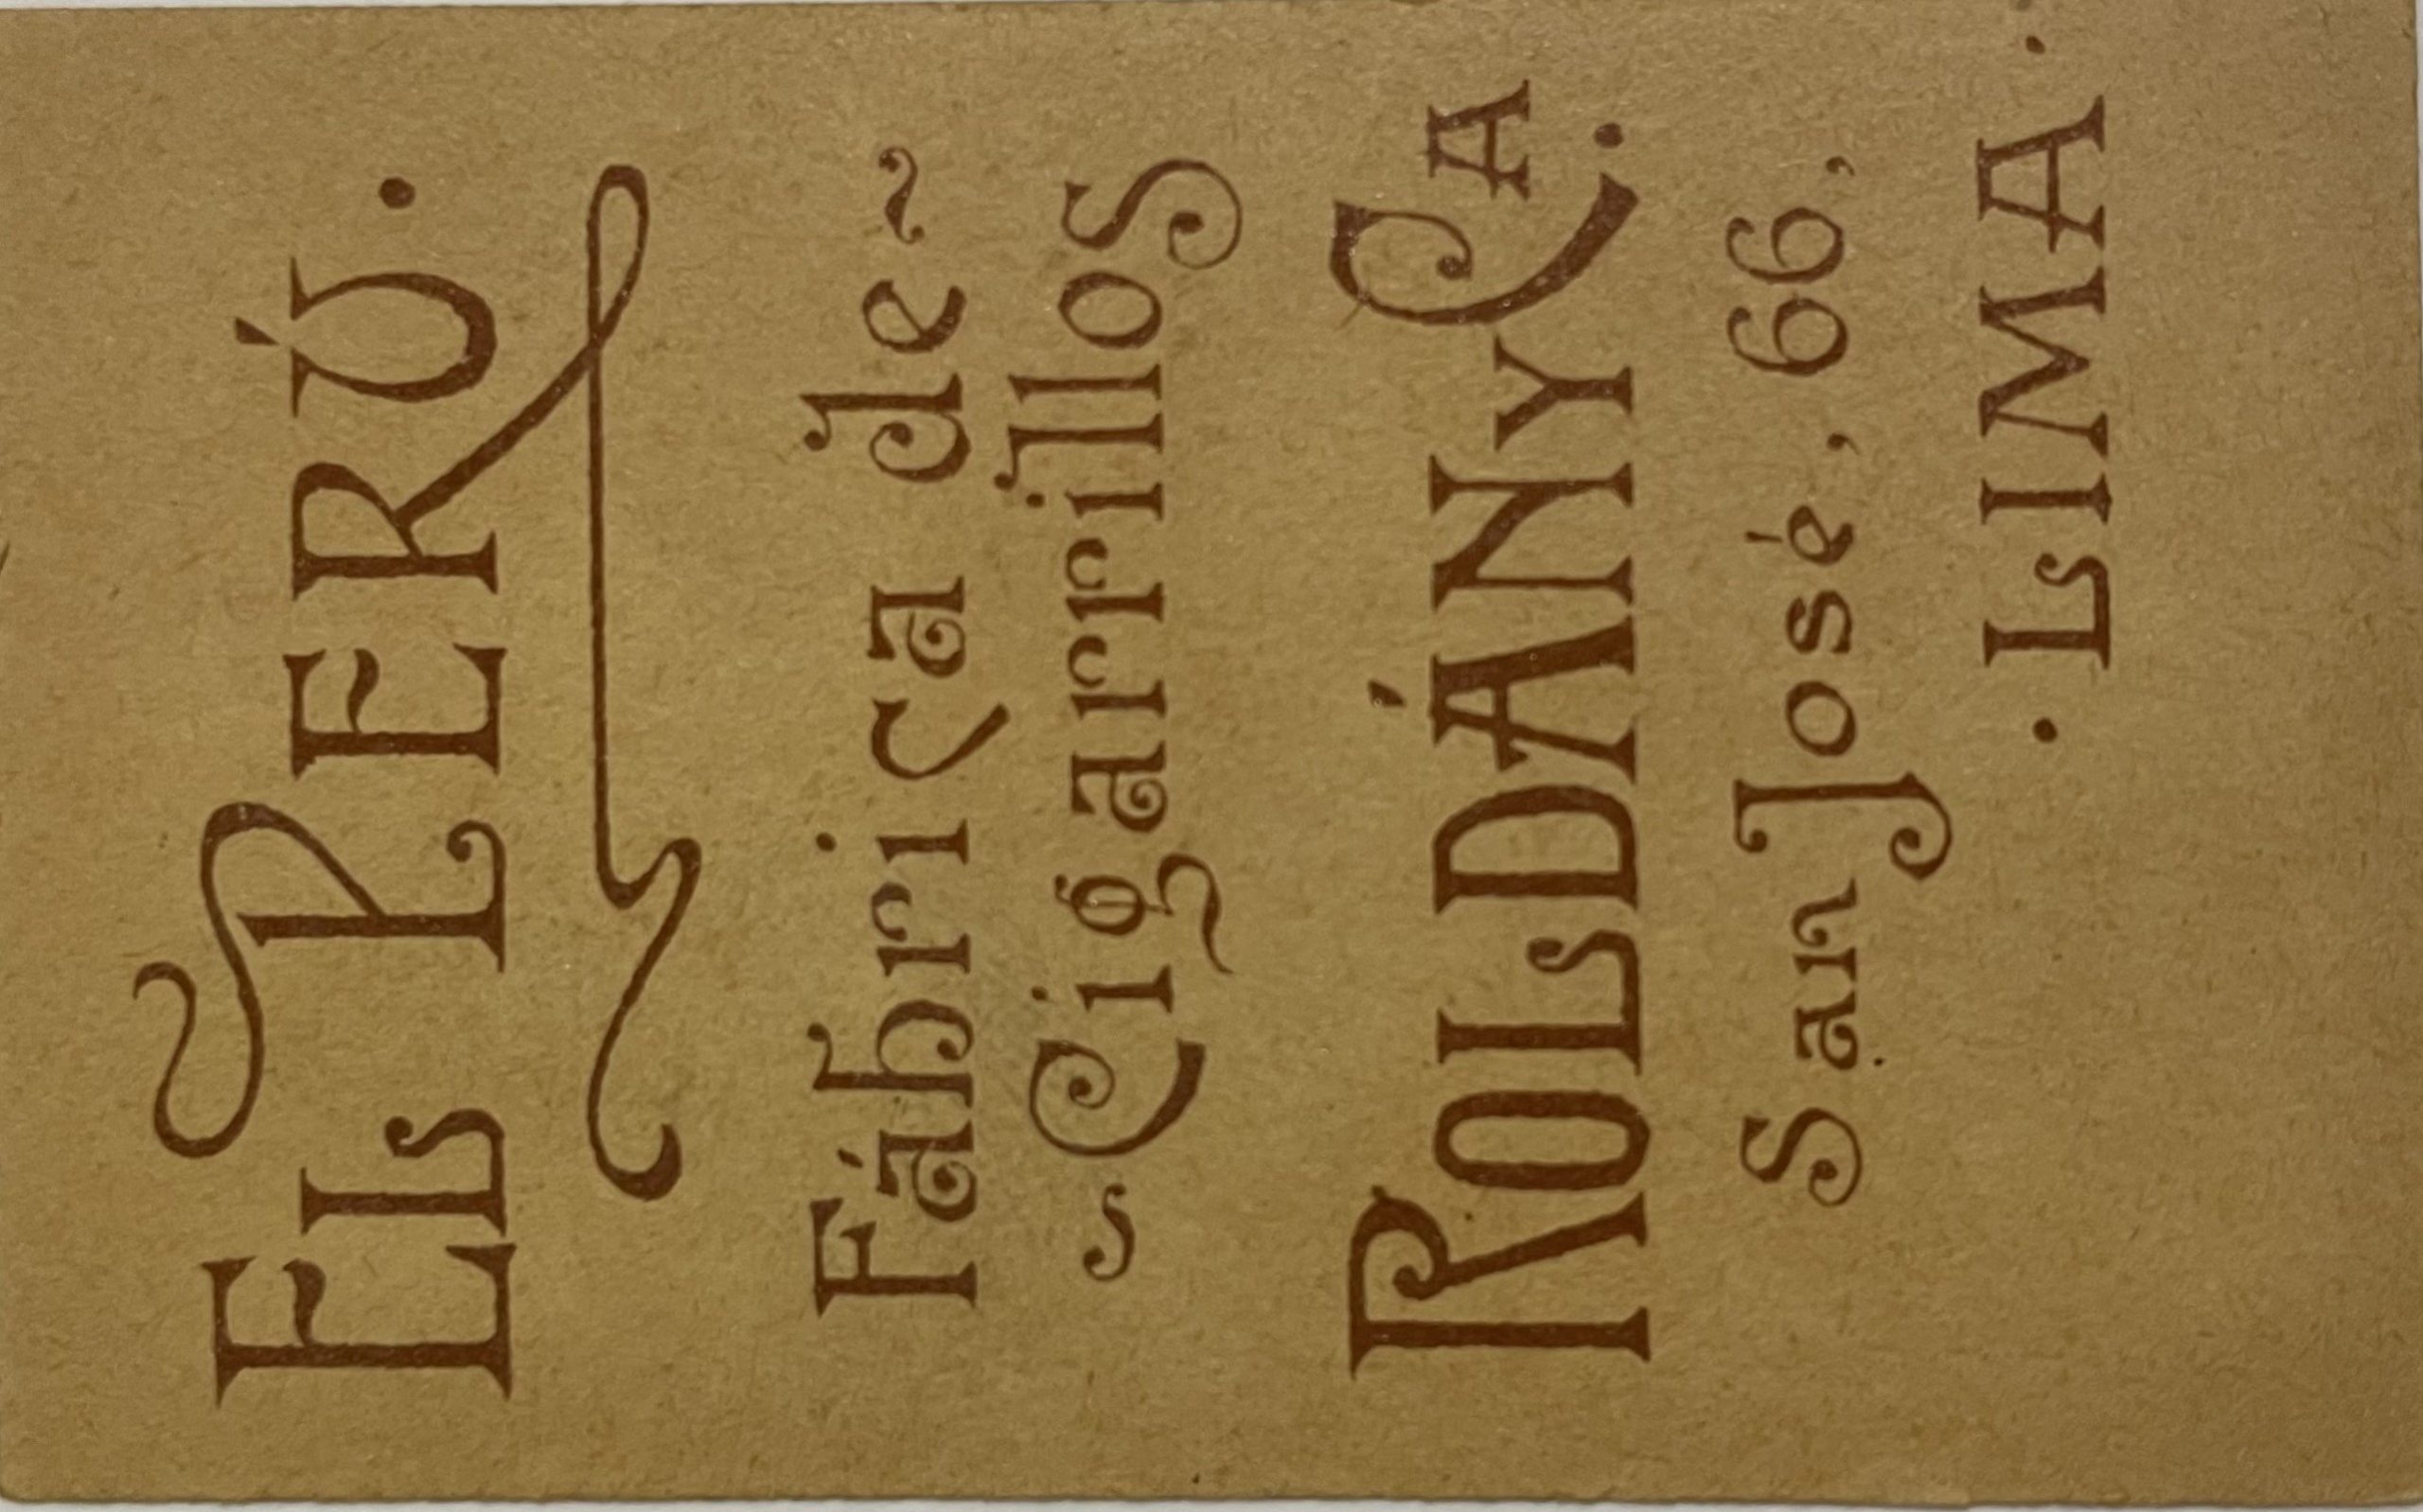 EL PERÚ.
Fábrica de
Cigarrillos
ROLDÁN Y Cᴬ.
San José, 66,
· LIMA ·